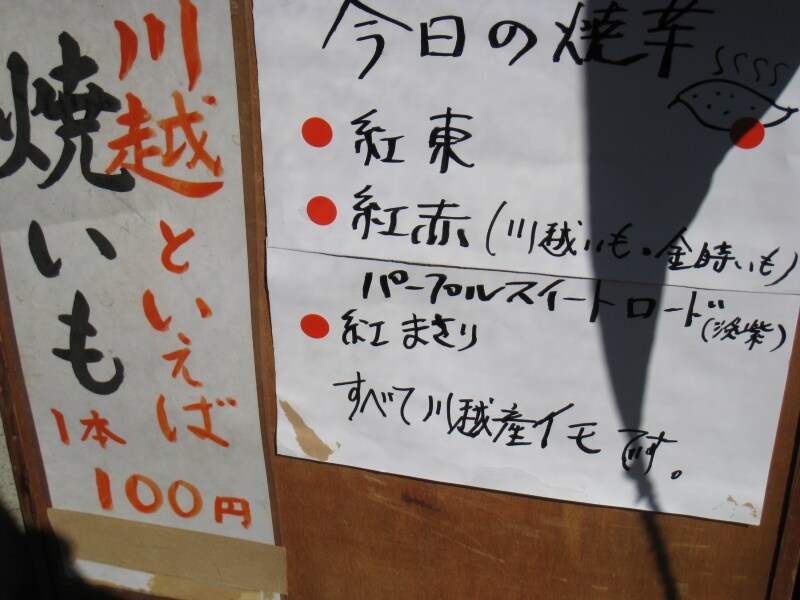 川越といえば
焼いも
1本
100円
今日の焼芋
紅東
紅赤(川越いも・金時いも)
パープルスイートロード(淡紫)
紅まさり
すべて川越産イモです。